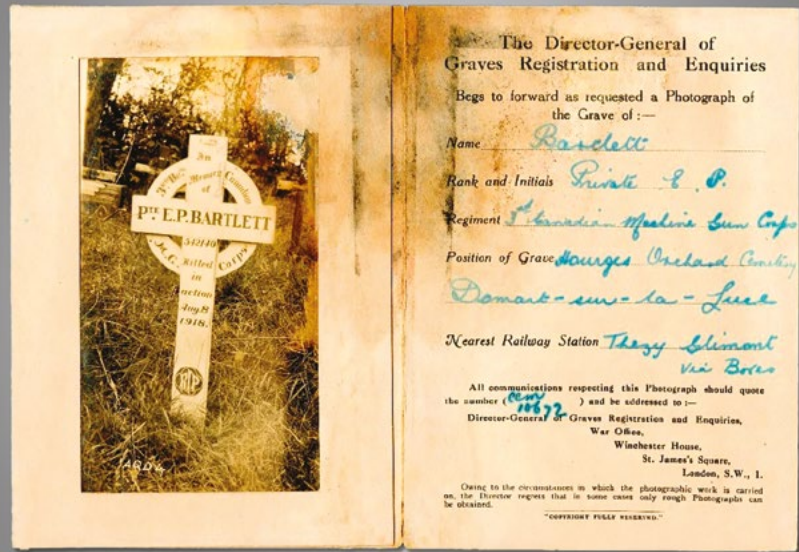 In
Memory
of
3rd Bn Canadian
PTE E.P.BARTLETT
542140
M.G. Corps
Killed
in
action
Aug 8
1918.
RIP
The Director-General of
Graves Registration and Enquiries
Begs to forward as requested a Photograph of
the Grave of :—
Name Bartlett
Rank and Initials Private E. P.
Regiment 3rd Canadian Machine Gun Corps
Position of Grave Hourges Orchard Cemetery
Domart-sur-la-Luce
Nearest Railway Station Thezy Glimont
via Boves
All communications respecting this Photograph should quote
the number (cem 10672) and be addressed to :—
Director-General of Graves Registration and Enquiries,
War Office,
Winchester House,
St. James's Square,
London, S.W., 1.
Owing to the circumstances in which the photographic work is carried
on, the Director regrets that in some cases only rough Photographs can
be obtained.
"COPYRIGHT FULLY RESERVED."